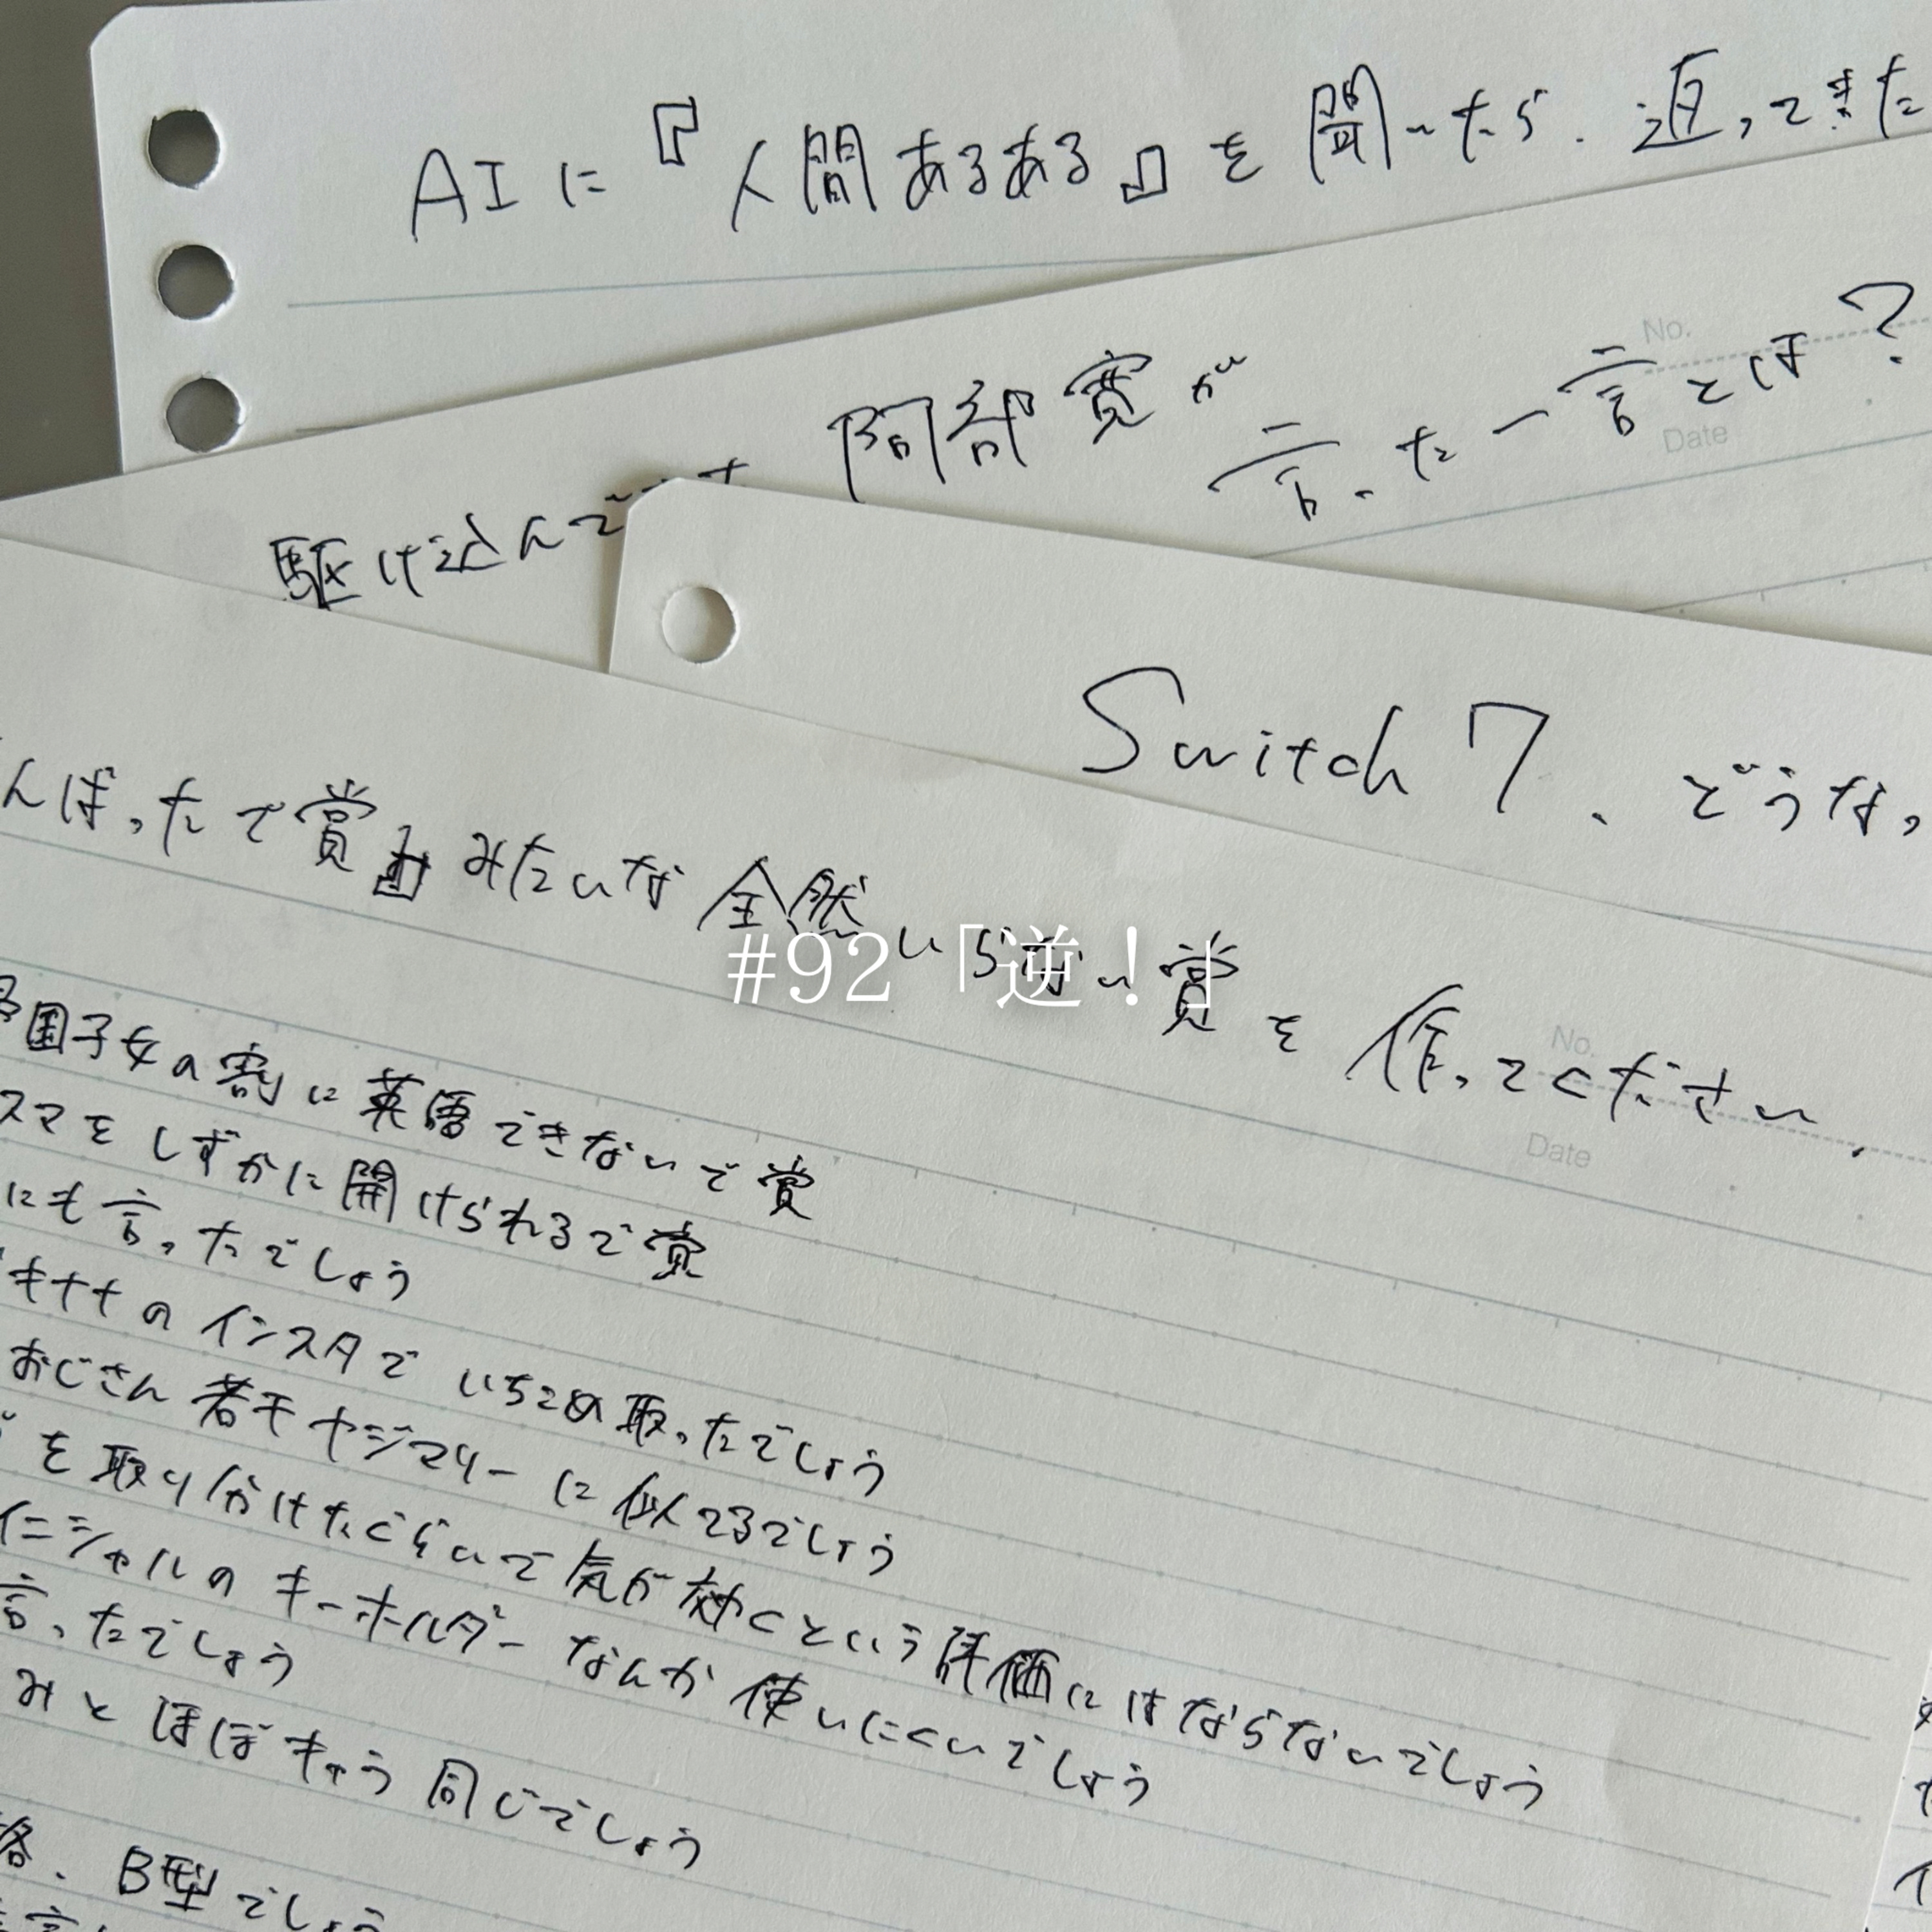 AIに『人間あるある』を聞いたら、返ってきた
No.
Date
駆け込んで 阿部寛が言った一言とは?
Switch 7、どうなっ
んばったで賞』みたいな全然いらない賞を作ってください。
#92「逆!」
No.
Date
国子女の割に英語できないで賞
スマをしずかに開けられるで賞
にも言ったでしょう
キナナのインスタでいちころ取ったでしょう
おじさん若干ヤジマリーに似てるでしょう
を取り分けたぐらいで気が効くという評価にはならないでしょう
イニシャルのキーホルダーなんか使いにくいでしょう
言ったでしょう
みとほぼキャラ同じでしょう
B型でしょう